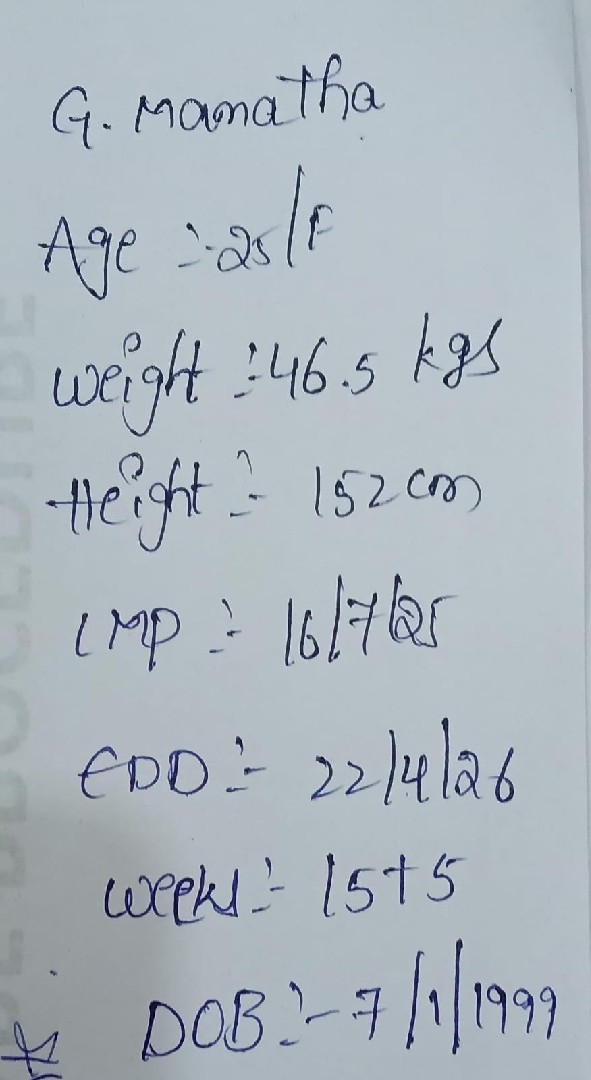 G. Mamatha
Age :- 25/F
weight :- 46.5 kgs
Height :- 152 cm
LMP :- 16/7/25
EDD :- 22/4/26
weeks :- 15+5
DOB :- 7/1/1999